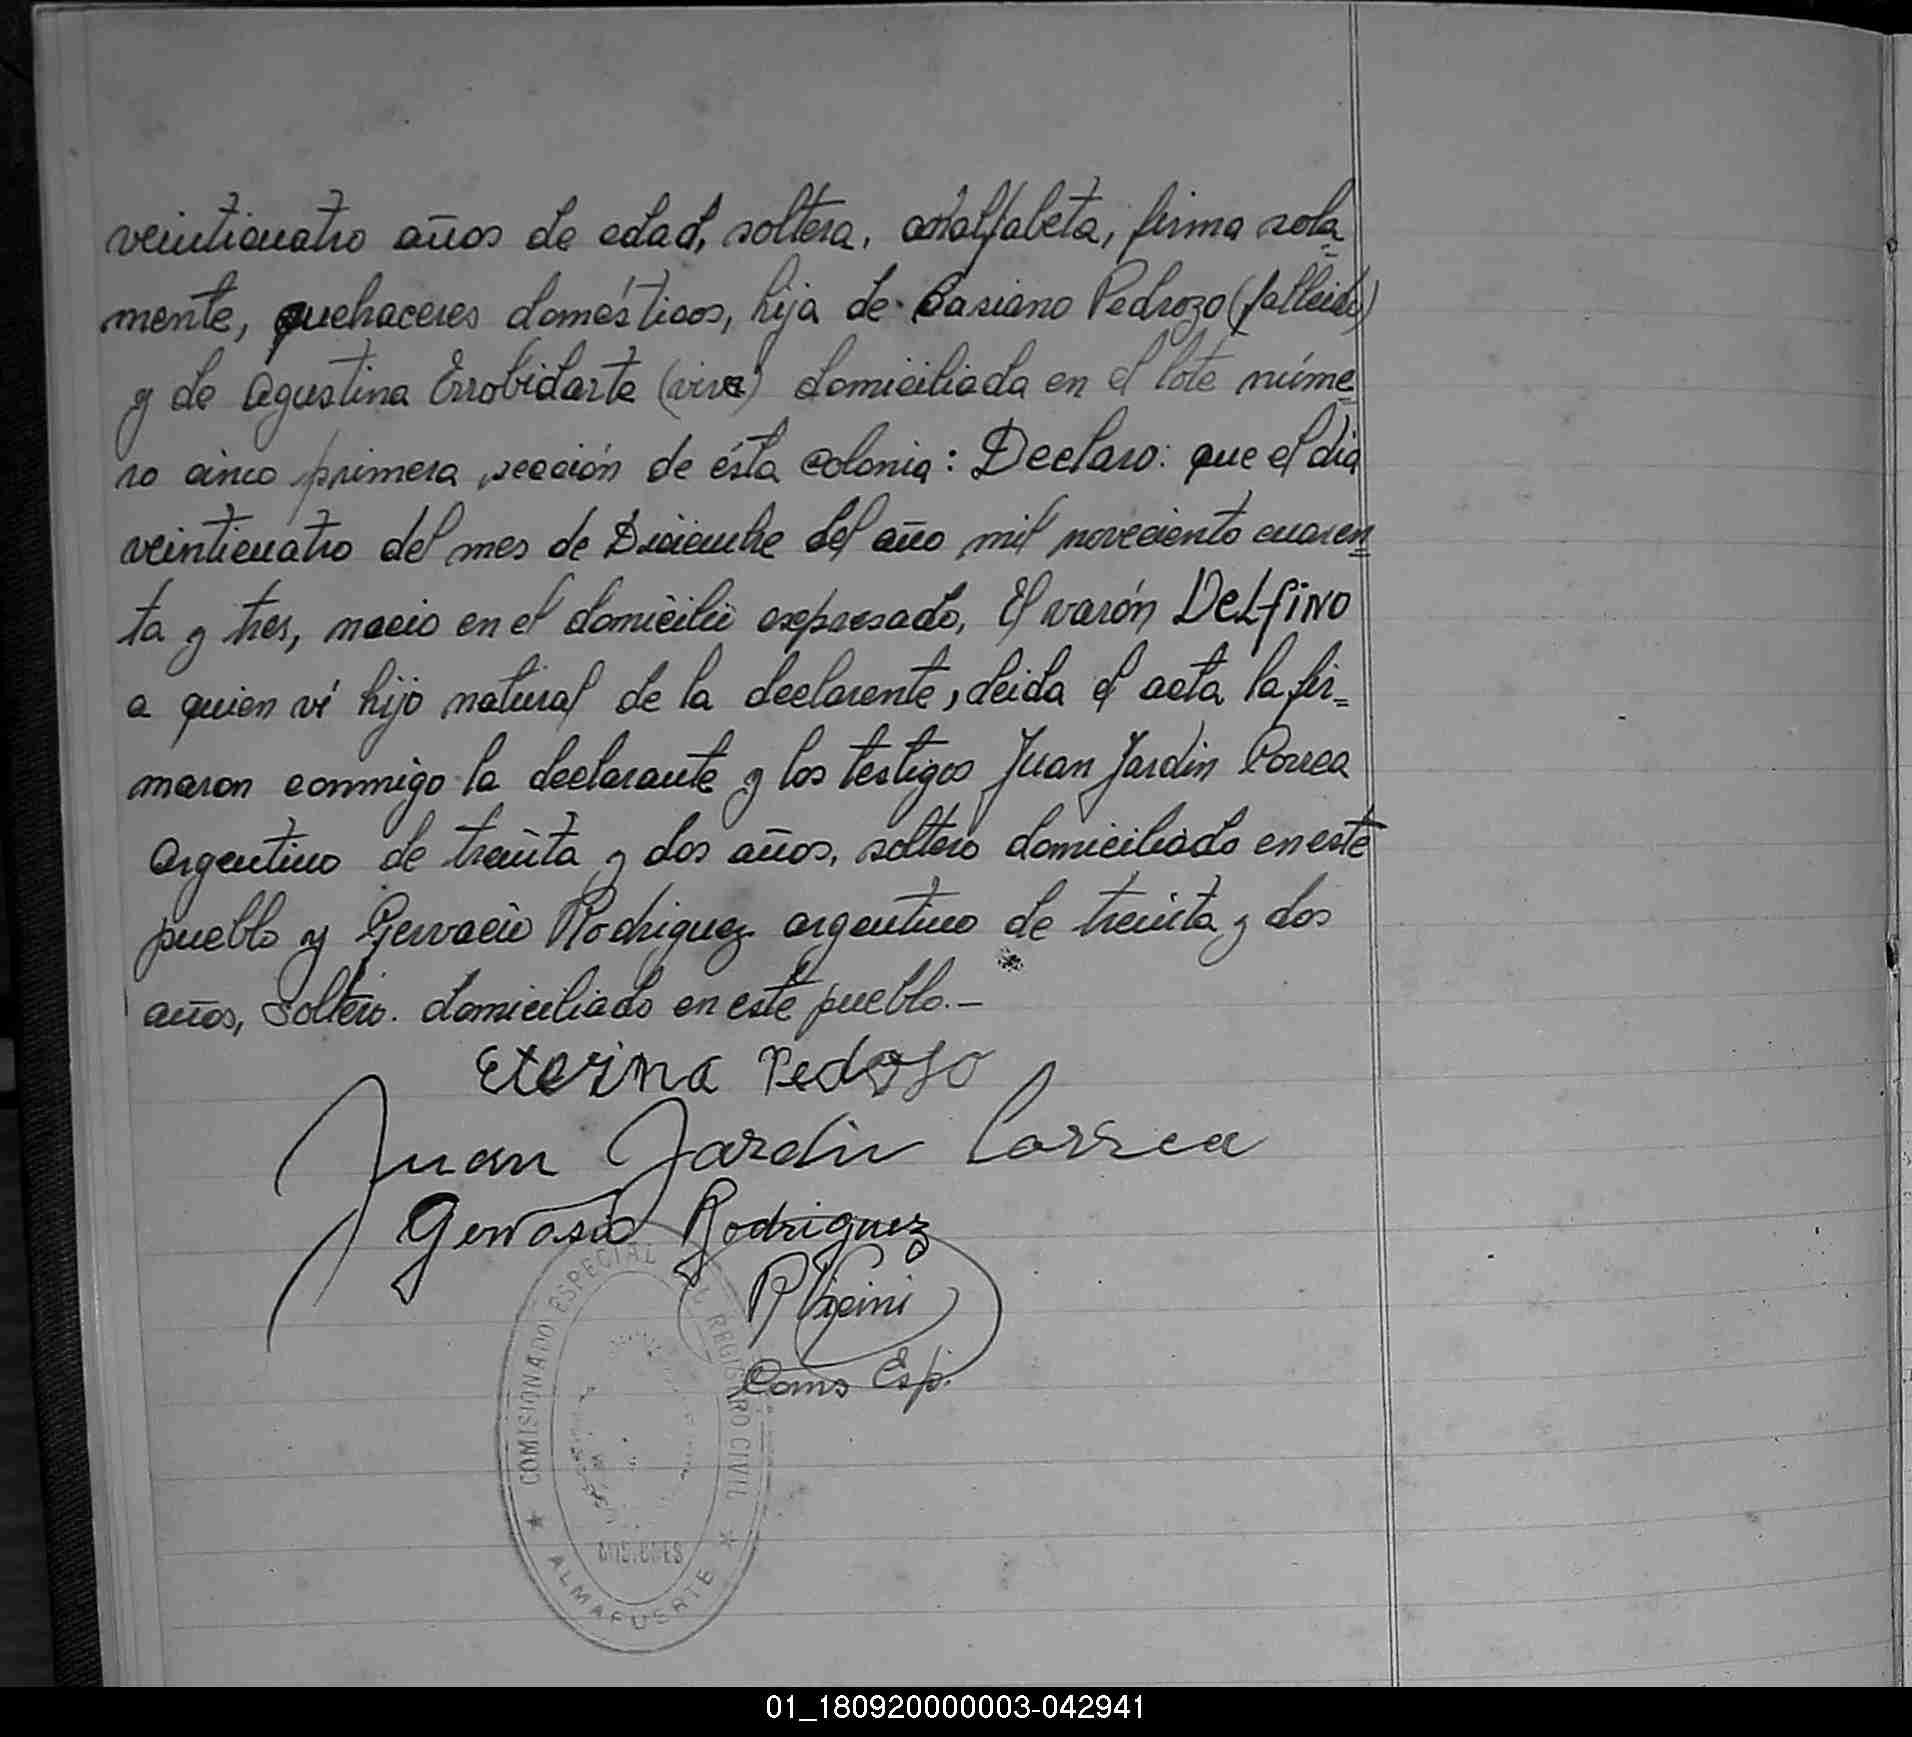 veinticuatro años de edad, soltera, analfabeta, firma sola=
mente, quehaceres domésticos, hija de Casiano Pedrozo (fallecido)
y de Agustina Errobidarte (vive) domiciliada en el lote núme=
ro cinco primera sección de ésta colonia: Declaro: que el dia
veinticuatro del mes de Diciembre del año mil noveciento cuaren=
ta y tres, nacio en el domicilio expresado, El varón DeLfiNO
a quien ví hijo natural de la declarente, leida el acta la fir=
maron conmigo la declarante y los testigos Juan Jardin Correa
argentino de treinta y dos años, soltero domiciliado en este
pueblo y Gervacio Rodriguez argentino de treinta y dos
años, soltero. domiciliado en este pueblo.—
Eterina Pedroso
Juan Jardin Correa
Gervasio Rodriguez
Coms Esp.
COMISIONADO ESPECIAL REGISTRO CIVIL
MISIONES
★ ALMAFUERTE ★
01_180920000003-042941